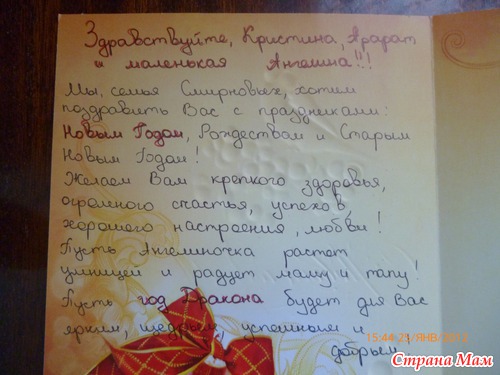 Здравствуйте, Кристина, Арарат
и маленькая Ангелина!!!
Мы, семья Смирновых, хотим
поздравить Вас с праздниками:
Новым Годом, Рождеством и Старым
Новым Годом!
Желаем Вам крепкого здоровья,
огромного счастья, успехов,
хорошего настроения, любви!
Пусть Ангелиночка растет
умницей и радует маму и папу!
Пусть год Дракона будет для Вас
ярким, щедрым, успешным и
добрым,
15:44 25/ЯНВ/2012
Страна Мам